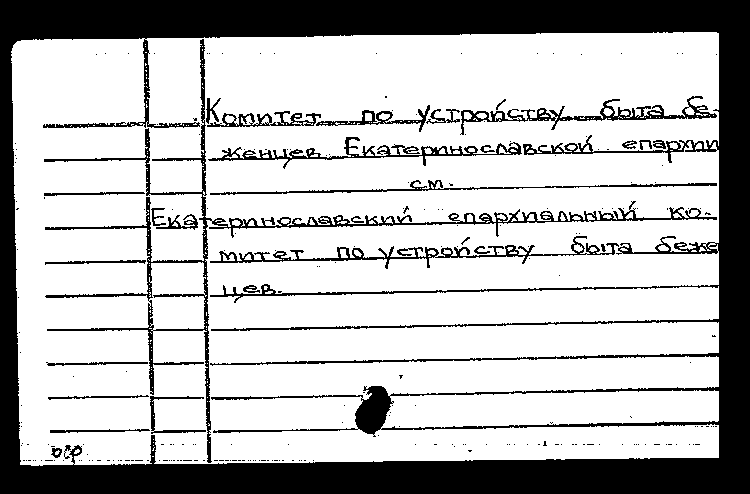 Комитет по устройству быта бе-
женцев Екатеринославской епархии
см.
Екатеринославский епархиальный ко-
митет по устройству быта беже
цев.